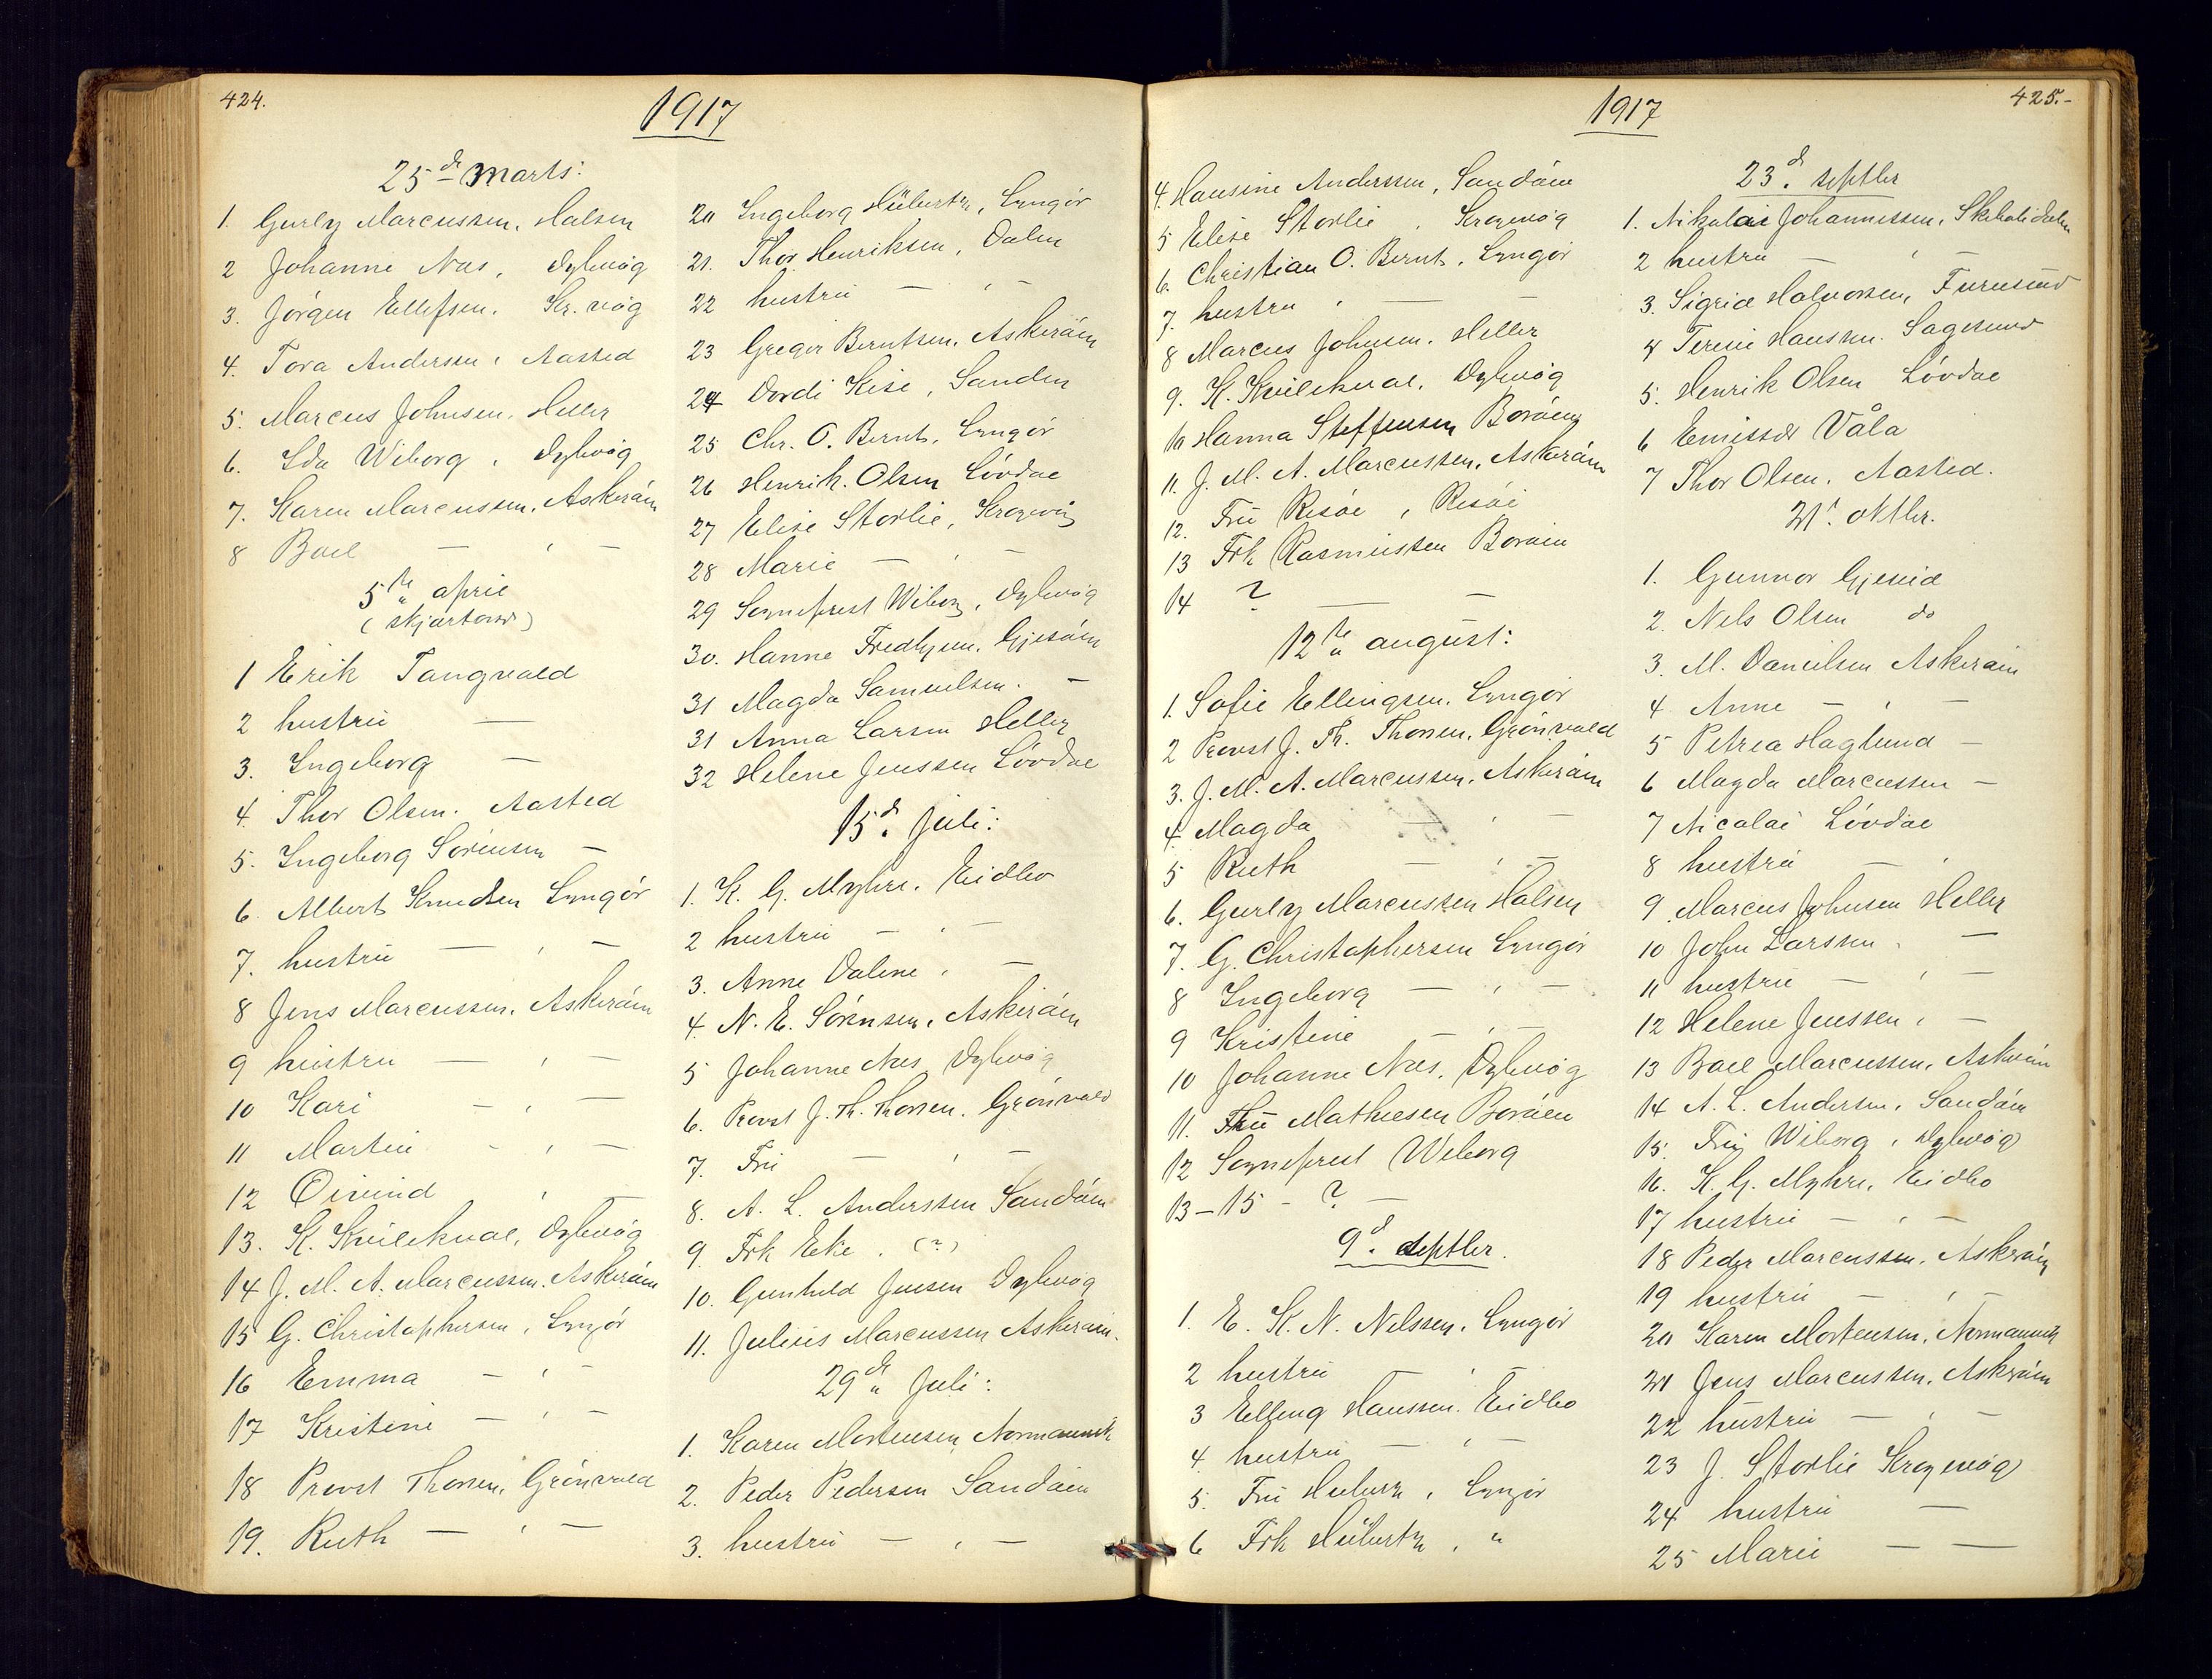 424.
1917
25de Marts:
1. Gurly Marcussen, Halsen
2 Johanne Næs, Dybvåg
3. Jørgen Ellefsen, Kr. våg
4. Tora Andersen, Aasted
5. Marcus Johnsen, Heller
6. Ida Wiborg, Dybvåg
7. Karen Marcussen, Askerøen
8 Boel — , —
5te april
(skjærtorsd)
1 Erik Tangvald
2 hustru —
3. Ingeborg —
4. Thor Olsen, Aasted
5. Ingeborg Sørensen —
6. Albert Knudsen Lyngør
7. hustru — , —
8 Jens Marcussen, Askerøen
9 hustru — , —
10 Kari — , —
11 Martin — , —
12 Øivind , —
13. K. Kvilekval, Dybvåg
14 J. M. A. Marcussen, Askerøen
15 G. Christophersen, Lyngør
16 Emma — , —
17 Kristine — , —
18 Provst Thorsen, Grønvold
19. Ruth — , —
20 Ingeborg Hübertz, Lyngør
21. Thor Henriksen, Dalen
22 hustru — , —
23 Greger Berntsen, Askerøen
24 Dordi Kise, Sanden
25 Chr. O. Bernts, Lyngør
26 Henrik Olsen Løvdal
27 Elise Storlie, Krogvåg
28 Marie — , —
29 Sogneprest Wiborg, Dybvåg
30. Hanne Fredhjem, Gjesøen
31 Magda Samuelsen. —
31 Anna Larsen Heller
32 Helene Jenssen Løvdal
15d. Juli:
1. K. G. Myhre, Eidbo
2 hustru — , —
3. Anne Dalene, —
4. N. E. Sørensen, Askerøen
5 Johanne Næs, Dybvåg
6. Provst J. Th. Thorsen, Grønvold
7. Fru — , —
8. A. L. Anderssen Sandøen
9. Frk Eke. (?)
10. Gunhild Jensen Dybvåg
11. Julius Marcussen Askerøen.
29de Juli:
1. Karen Mortensen, Normannvik
2. Peder Pedersen Sandøen
3. hustru — , —
1917
425.-
4. Hansine Anderssen, Sandøen
5 Elise Storlie, Krogevåg
6. Christian O. Bernts, Lyngør
7. hustru , — —
8 Marcus Johnsen, Heller
9. K. Kvilekval, Dybvåg
10 Hanna Steffensen Borøen
11. J. M. A. Marcussen, Askerøen
12. Fru Risøe, Risøe
13 Frk Rasmussen Borøen
14 ? — —
12te august:
1. Sofie Ellingsen, Lyngør
2 Provst J. Th. Thorsen, Grønvold
3. J. M. A. Marcussen, Askerøen
4. Magda — , —
5 Ruth — , —
6. Gurly Marcussen Halsen
7. G. Christophersen Lyngør
8 Ingeborg — , —
9 Kristine — , —
10 Johanne Næs, Dybvåg
11. Fru Mathiesen Borøen
12 Sogneprest Wiborg
13-15 - ? —
9d. septbr.
1. E. K. N. Nilssen, Lyngør
2 hustru — , —
3 Elling Hanssen, Eidbo
4. hustru — , —
5. Fru Hübertz, Lyngør
6 Frk Hübertz, "
23d. septbr
1. Nikolai Johannessen,
2 hustru — , —
3. Sigrid Halvorsen, Furusund
4 Terine Hanssen. Sagesund
5. Henrik Olsen Løvdal
6 Emissær Våla
7 Thor Olsen, Aasted.
21. oktbr.
1. Gunvor Gjervid
2. Nels Olsen do
3. M. Danielsen Askerøen
4 Anne — , —
5 Petrea Haglund —
6 Magda Marcussen —
7 Nicolai Løvdal
8 hustru — ,
9 Marcus Johnsen Heller
10 John Larssen, —
11 hustru — , —
12 Helene Jenssen, —
13 Boel Marcussen, Askerøen
14 A. L. Andersen, Sandøen
15. Fru Wiborg, Dybvåg
16. K. G. Myhre, Eidbo
17 hustru — , —
18 Peder Marcussen, Askerøen
19 hustru — , —
20 Karen Mortensen, Normannvik
21 Jens Marcussen, Askerøen
22 hustru — , —
23 J. Storlie Krogevåg
24 hustru —
25 Marie — —